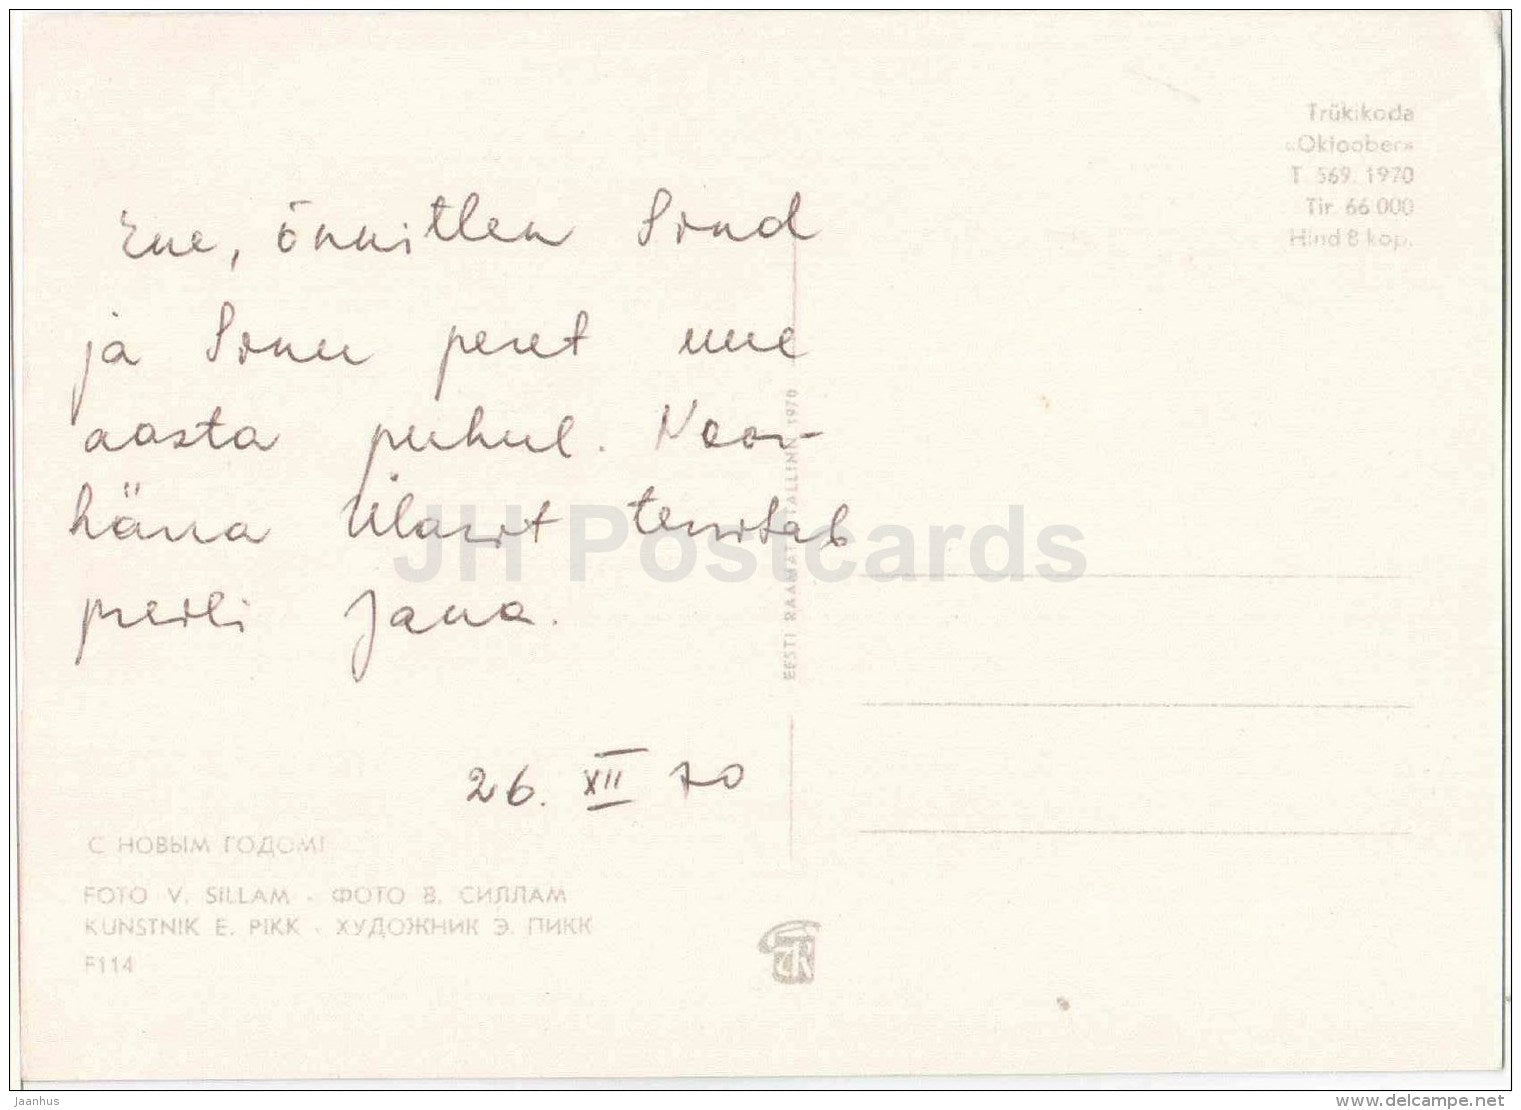 Trükikoda
«Oktoober»
T. 569. 1970
Tir. 66 000
Hind 8 kop.
Ene, õnnitlen Sind
ja Sinu peret uue
aasta puhul. Noor-
häna Ülarit tervitab
preili Jana.
26. XII 70
EESTI RAAMAT TALLINN 1970
JH Postcards
С НОВЫМ ГОДОМ!
FOTO V. SILLAM · ФОТО В. СИЛЛАМ
KUNSTNIK E. PIKK · ХУДОЖНИК Э. ПИКК
F114
Jaanhus
www.delcampe.net